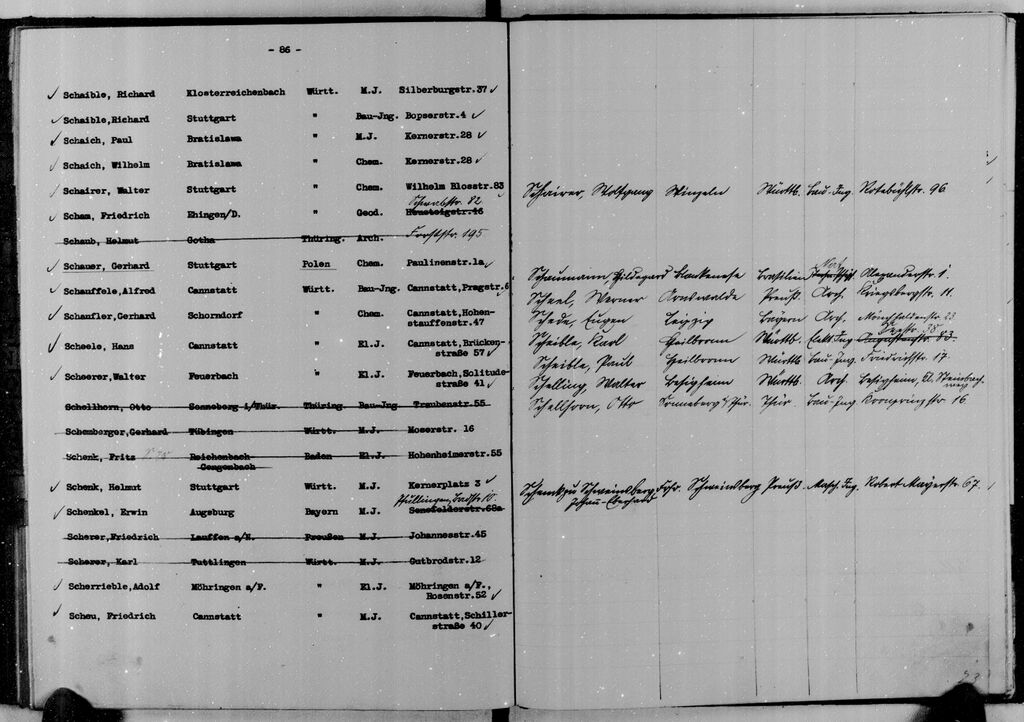 - 86 -
Schaible, Richard Klosterreichenbach Württ. M.J. Silberburgstr.37
Schaible,Richard Stuttgart " Bau-Jng. Bopserstr.4
Schaich, Paul Bratislawa " M.J. Kernerstr.28
Schaich, Wilhelm Bratislawa " Chem. Kernerstr.28
Schairer, Walter Stuttgart " Chem. Wilhelm Blosstr.83
Schwabstr. 82
Scham, Friedrich Ehingen/D. " Geod. Heusteigstr.46
Forststr. 195
Schaub, Helmut Gotha Thüring. Arch.
Schauer, Gerhard Stuttgart Polen Chem. Paulinenstr.1a
Schauffele,Alfred Cannstatt Württ. Bau-Jng. Cannstatt,Pragstr.6
Schaufler,Gerhard Schorndorf " Chem. Cannstatt,Hohen-
stauffenstr.47
Scheele, Hans Cannstatt " El.J. Cannstatt,Brücken-
straße 57
Scheerer,Walter Feuerbach " El.J. Feuerbach,Solitude-
straße 41
Schellhorn, Otto Sonneberg i/Thür. Thüring Bau-Jng Traubenstr.55
Schemberger,Gerhard Tübingen Württ. M.J. Moserstr. 16
Schenk, Fritz Reichenbach- Baden El.J. Hohenheimerstr.55
Gengenbach
Schenk, Helmut Stuttgart Württ. M.J. Kernerplatz 3
Pfullingen, Badstr. 10
Schenkel, Erwin Augsburg Bayern M.J. Senefelderstr.68a
Scherer,Friedrich Lauffen a/N. Preußen M.J. Johannesstr.45
Scherer, Karl Tuttlingen Württ. M.J. Gutbrodstr.12
Scherrieble,Adolf Möhringen a/F. " El.J. Möhringen a/F.,
Rosenstr.52
Scheu, Friedrich Cannstatt " M.J. Cannstatt,Schiller-
straße 40
Schairer, Wolfgang Württb. Bau-Ing Rotebühlstr. 96
Schaumann Hildegard Blankenese Brasilien Alexanderstr. 1
Scheel, Werner Arnswalde Preuß. Arch. Kriegsbergstr. 11.
Schede, Eugen Leipzig Bayern Arch.
Scheible, Karl Heilbronn Württb. Elektr Ing Augustenstr. 83.
Scheible, Paul Heilbronn Württb Bau-Ing Friedrichstr. 17
Schelling, Walter Besigheim Württb. Arch. Besigheim, Kl. Steinbach-
weg
Schellhorn, Otto Sonneberg i/Thür. Thür. Bau-Ing Kronprinzstr. 16
Schenk zu Schweinsberg Frhr. Schweinsberg Preuß. Masch. Ing. Robert Mayerstr. 67.